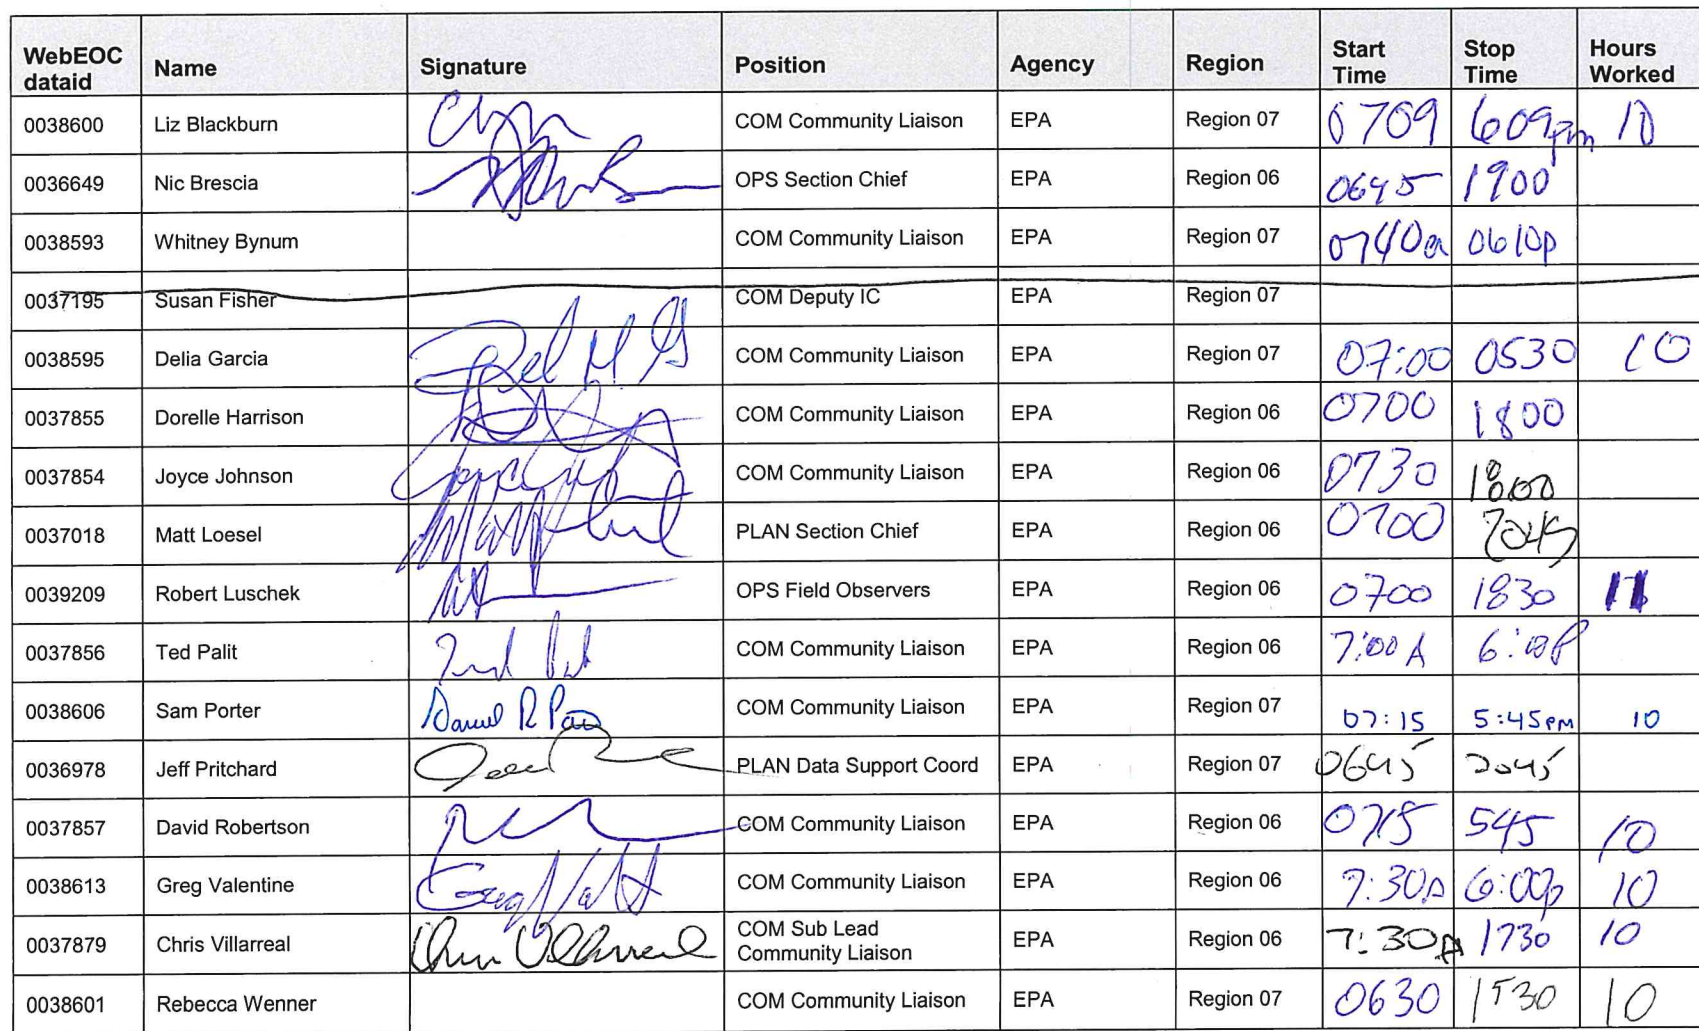 WebEOC dataid Name Signature Position Agency Region Start Time Stop Time Hours Worked
0038600 Liz Blackburn COM Community Liaison EPA Region 07 0709 609pm 10
0036649 Nic Brescia OPS Section Chief EPA Region 06 0645 1900
0038593 Whitney Bynum COM Community Liaison EPA Region 07 0740a 0610p
0037195 Susan Fisher COM Deputy IC EPA Region 07
0038595 Delia Garcia COM Community Liaison EPA Region 07 07:00 0530 10
0037855 Dorelle Harrison COM Community Liaison EPA Region 06 0700 1800
0037854 Joyce Johnson COM Community Liaison EPA Region 06 0730 1800
0037018 Matt Loesel PLAN Section Chief EPA Region 06 0700 2045
0039209 Robert Luschek OPS Field Observers EPA Region 06 0700 1830 11
0037856 Ted Palit COM Community Liaison EPA Region 06 7:00A 6:00P
0038606 Sam Porter COM Community Liaison EPA Region 07 07:15 5:45PM 10
0036978 Jeff Pritchard PLAN Data Support Coord EPA Region 07 0645 2045
0037857 David Robertson COM Community Liaison EPA Region 06 0715 545 10
0038613 Greg Valentine Greg Valt COM Community Liaison EPA Region 06 7:30A 6:00p 10
0037879 Chris Villarreal Chris Villarreal COM Sub Lead Community Liaison EPA Region 06 7:30A 1730 10
0038601 Rebecca Wenner COM Community Liaison EPA Region 07 0630 1530 10